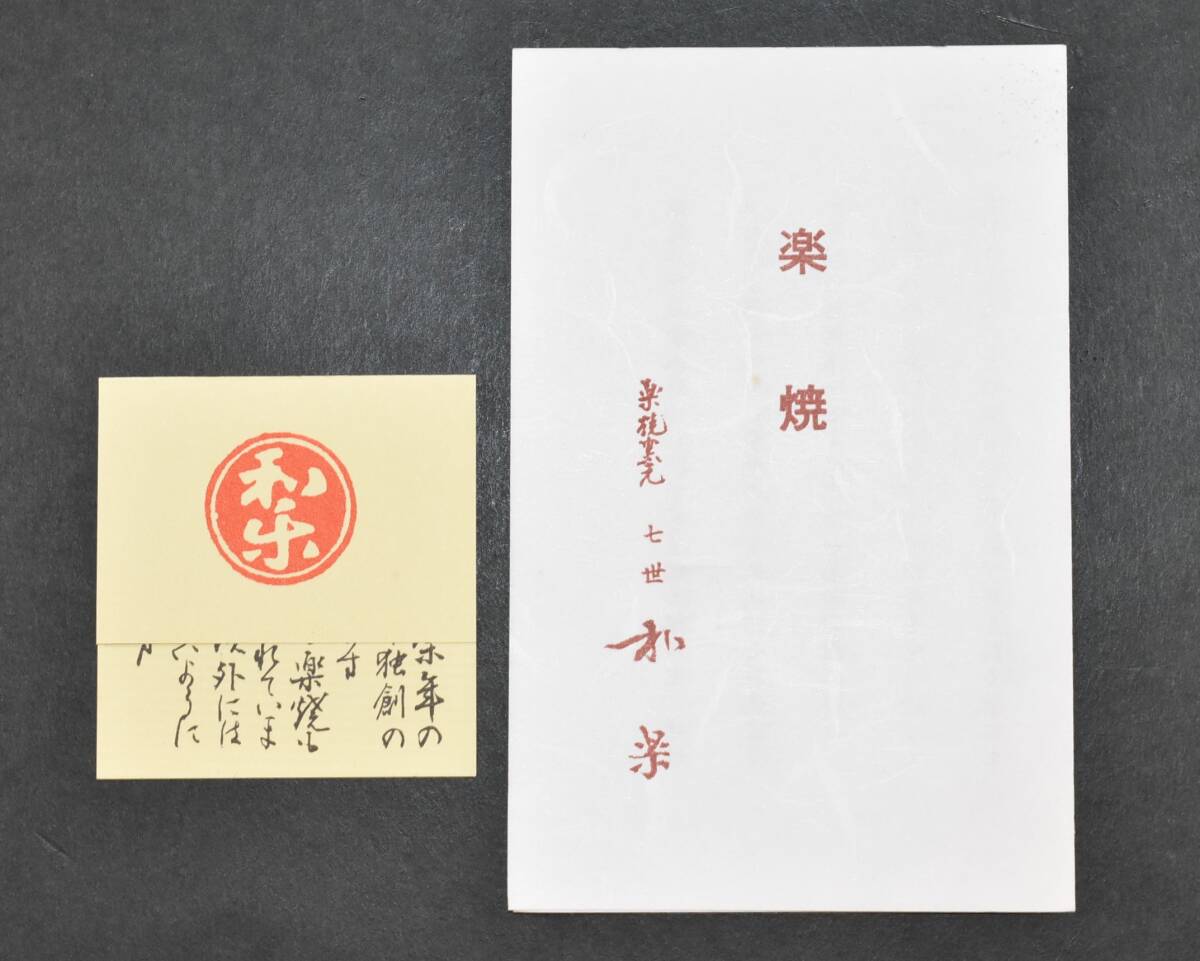 楽焼
楽焼窯元 七世 和楽
和楽
年の
独創の
す
楽焼
れていま
以外には
ように